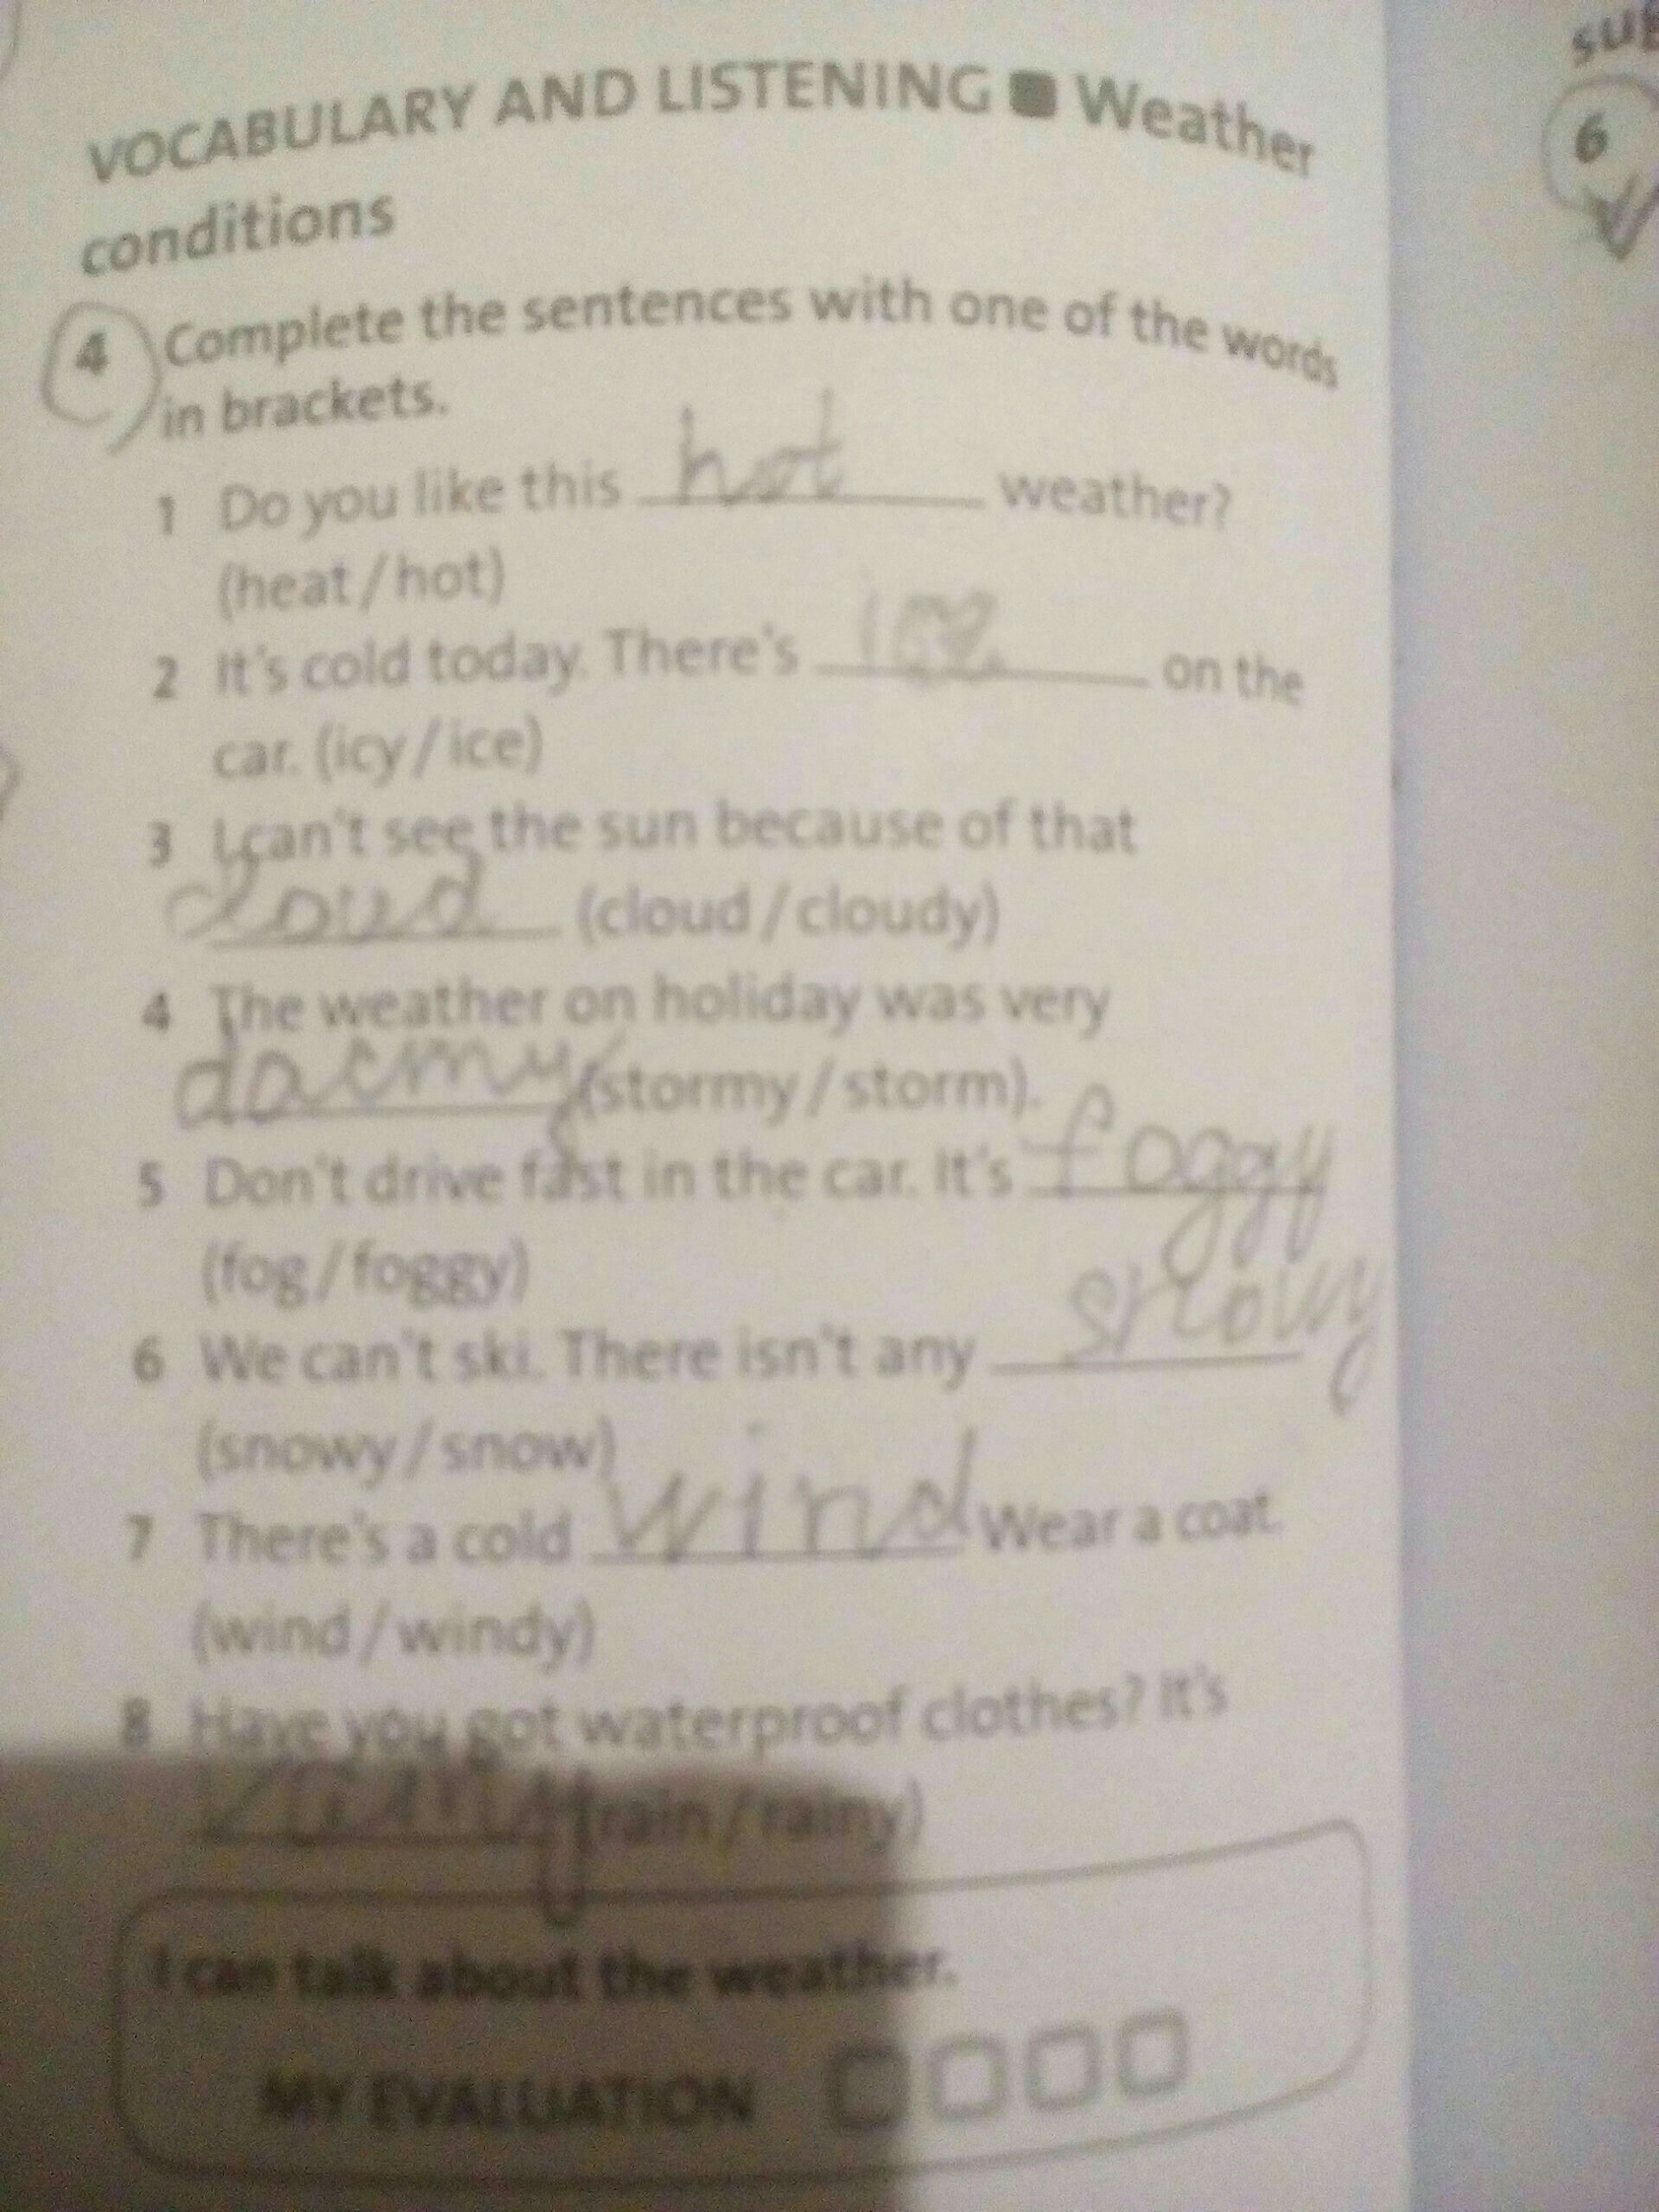 sub
6
VOCABULARY AND LISTENING ■ Weather
conditions
4 Complete the sentences with one of the words
in brackets.
1 Do you like this hot weather?
(heat / hot)
2 It's cold today. There's ice on the
car. (icy / ice)
3 I can't see the sun because of that
cloud (cloud / cloudy)
4 The weather on holiday was very
(stormy / storm).
5 Don't drive fast in the car. It's foggy
(fog / foggy)
6 We can't ski. There isn't any snowy
(snowy / snow)
7 There's a cold wind Wear a coat.
(wind / windy)
8 Have you got waterproof clothes? It's
rainy (rain / rainy)
I can talk about the weather.
MY EVALUATION